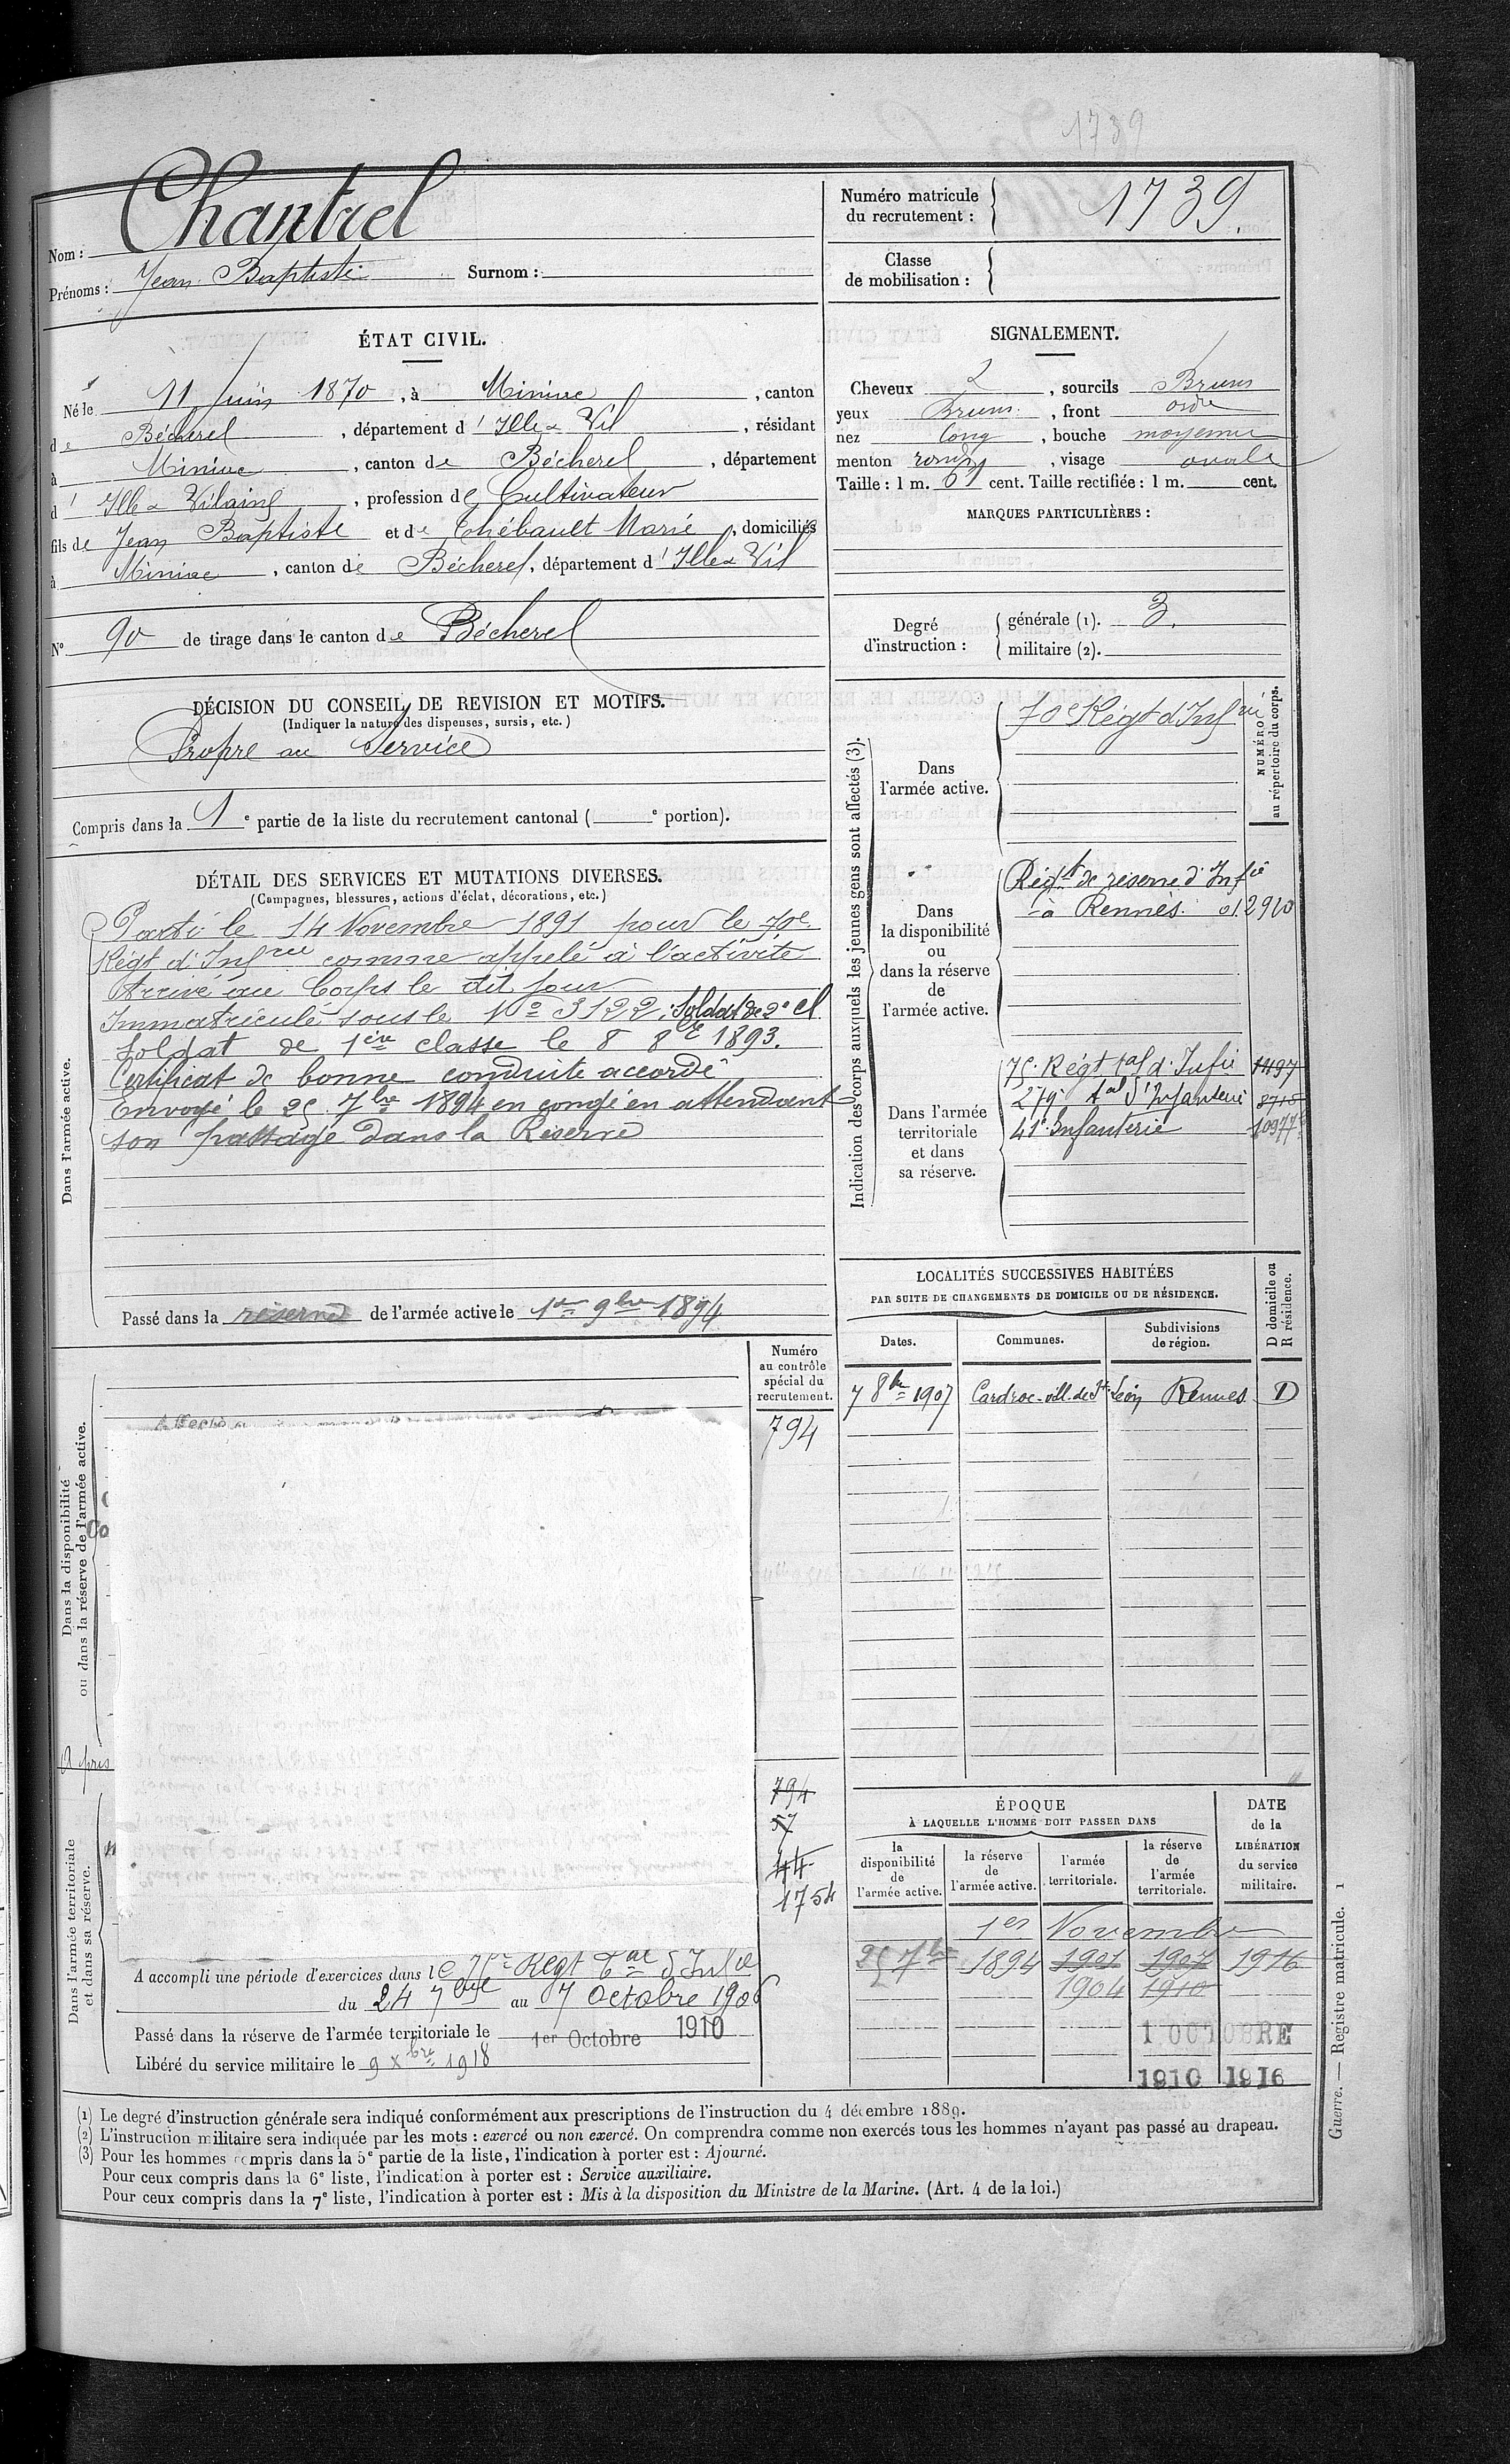 1739
Nom : Chantrel
Prénoms : Jean Baptiste Surnom :
Numéro matricule du recrutement : 1739.
Classe de mobilisation :
ÉTAT CIVIL.
Né le 11 Juin 1870, à Miniac, canton
de Bécherel, département d'Ille & Vil, résidant
à Miniac, canton de Bécherel, département
d'Ille & Vilaine, profession de Cultivateur
fils de Jean Baptiste et de Thébault Marie, domiciliés
à Miniac, canton de Bécherel, département d'Ille & Vil
N° 90 de tirage dans le canton de Bécherel
SIGNALEMENT.
Cheveux , sourcils Bruns
yeux Bruns, front ordre
nez long, bouche moyenne
menton rond, visage ovale
Taille : 1 m. 61 cent. Taille rectifiée : 1 m. cent.
MARQUES PARTICULIÈRES :
Degré d'instruction : générale (1). 3.
militaire (2).
DÉCISION DU CONSEIL DE REVISION ET MOTIFS.
(Indiquer la nature des dispenses, sursis, etc.)
Propre au Service
Compris dans la 1e partie de la liste du recrutement cantonal ( e portion).
DÉTAIL DES SERVICES ET MUTATIONS DIVERSES.
(Campagnes, blessures, actions d'éclat, décorations, etc.)
Dans l'armée active.
Parti le 14 Novembre 1891 pour le 70e
Régt d'Infrie comme appelé à l'activité
Arrivé au Corps le dit jour
Immatriculé sous le No 3122. Soldat de 2e cl.
Soldat de 1ère classe le 8 8re 1893.
Certificat de bonne conduite accordé
Envoyé le 25 7bre 1894 en congé en attendant
son passage dans la Réserve
Passé dans la réserve de l'armée active le 1er 9bre 1894
Indication des corps auxquels les jeunes gens sont affectés (3).
NUMÉRO au répertoire du corps.
Dans l'armée active.
70e Régt d'Infrie
Dans la disponibilité ou dans la réserve de l'armée active.
Régt de réserve d'Infie
à Rennes. 012920
Dans l'armée territoriale et dans sa réserve.
75e Régt tal d'Infie 1497
279e tal d'Infanterie 8715
41e Infanterie 10977
LOCALITÉS SUCCESSIVES HABITÉES
PAR SUITE DE CHANGEMENTS DE DOMICILE OU DE RÉSIDENCE.
D domicile ou R résidence.
Dates. Communes. Subdivisions de région.
7 8bre 1907 Cardroc-vill. de St Léon Rennes D
Dans la disponibilité ou dans la réserve de l'armée active.
Numéro au contrôle spécial du recrutement.
794
Co
A pris
794
57
44
1754
Dans l'armée territoriale et dans sa réserve.
A accompli une période d'exercices dans le 75e Régt Tal d'Infie
du 24 7bre au 7 Octobre 1906
Passé dans la réserve de l'armée territoriale le 1er Octobre 1910
Libéré du service militaire le 9 Xbre 1918
ÉPOQUE
À LAQUELLE L'HOMME DOIT PASSER DANS
DATE de la LIBÉRATION du service militaire.
la disponibilité de l'armée active. la réserve de l'armée active. l'armée territoriale. la réserve de l'armée territoriale.
1er Novembre
25 7bre 1894 1901 1907 1916
1904 1910
1 OCTOBRE
1910 1916
(1) Le degré d'instruction générale sera indiqué conformément aux prescriptions de l'instruction du 4 décembre 1889.
(2) L'instruction militaire sera indiquée par les mots : exercé ou non exercé. On comprendra comme non exercés tous les hommes n'ayant pas passé au drapeau.
(3) Pour les hommes compris dans la 5e partie de la liste, l'indication à porter est : Ajourné.
Pour ceux compris dans la 6e liste, l'indication à porter est : Service auxiliaire.
Pour ceux compris dans la 7e liste, l'indication à porter est : Mis à la disposition du Ministre de la Marine. (Art. 4 de la loi.)
Guerre. — Registre matricule. 1